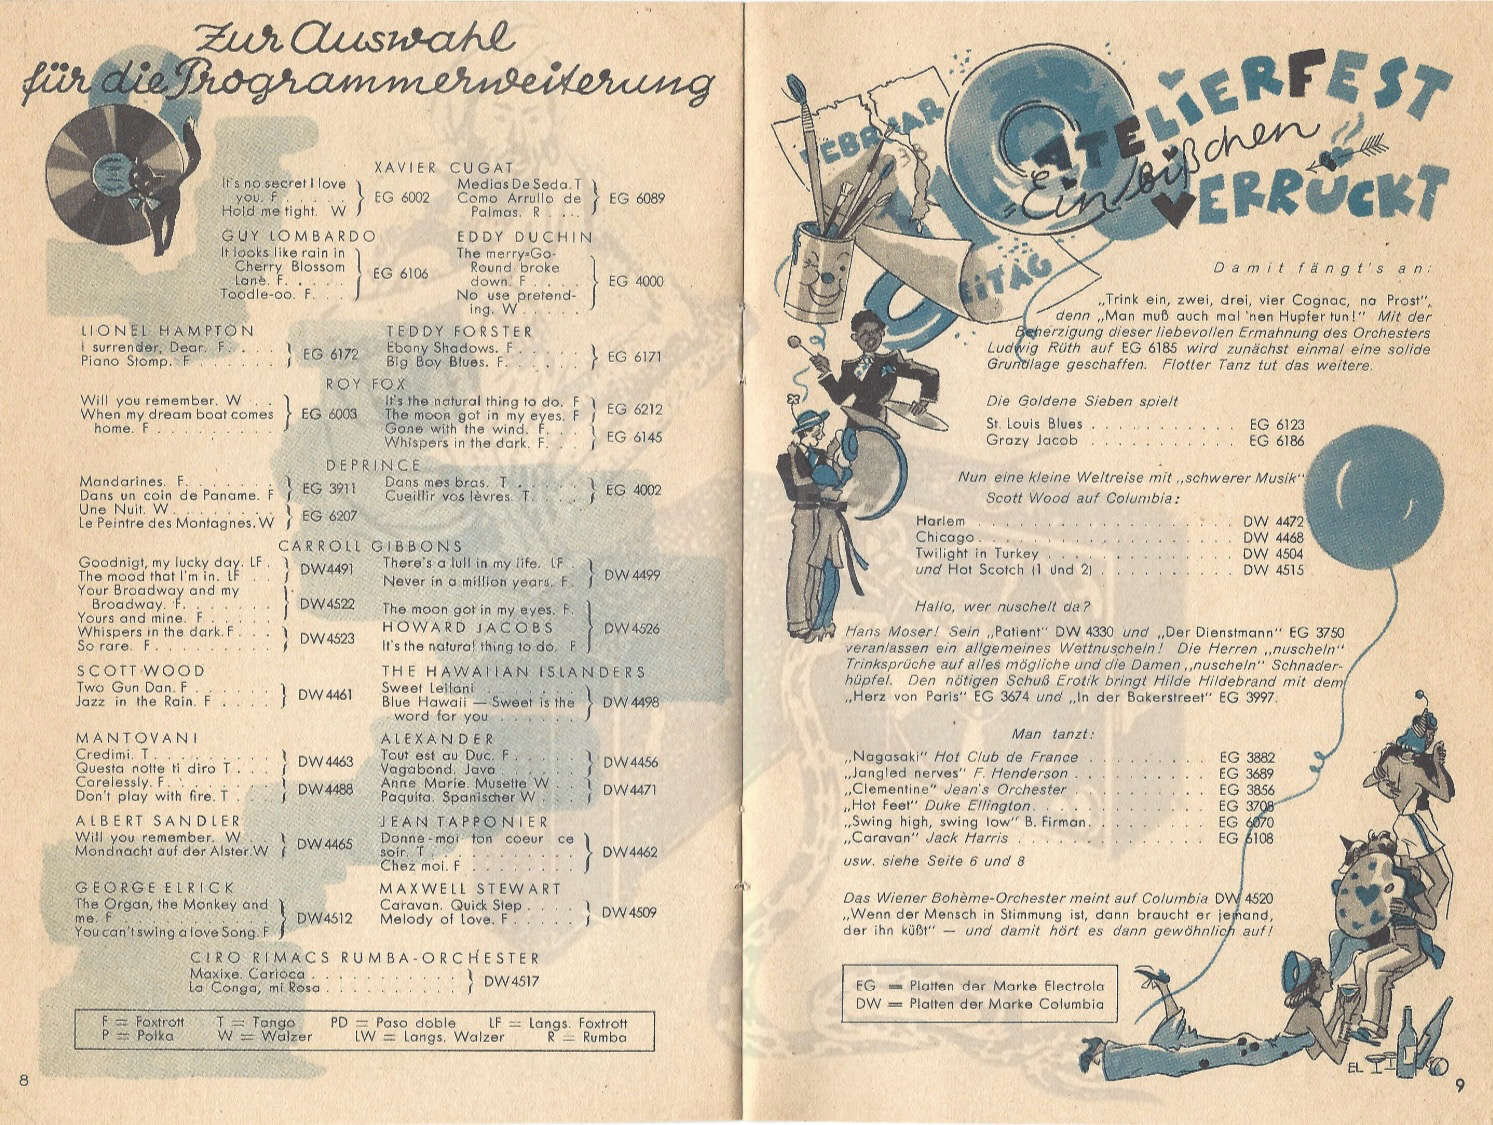 Zur Auswahl
für die Programmerweiterung
XAVIER CUGAT
It's no secret I love
you. F . . . . .
Hold me tight. W
EG 6002
Medias De Seda. T
Como Arrullo de
Palmas. R . . . .
EG 6089
GUY LOMBARDO
It looks like rain in
Cherry Blossom
Lane. F. . . . . .
Toodle-oo. F. . . .
EG 6106
EDDY DUCHIN
The merry-Go-
Round broke
down. F . . . .
No use pretend-
ing. W . . . . .
EG 4000
LIONEL HAMPTON
I surrender, Dear. F. . . .
Piano Stomp. F . . . . . .
EG 6172
TEDDY FORSTER
Ebony Shadows. F . . . . .
Big Boy Blues. F. . . . . .
EG 6171
ROY FOX
Will you remember. W . .
When my dream boat comes
home. F . . . . . . . . .
EG 6003
It's the natural thing to do. F
The moon got in my eyes. F
EG 6212
Gone with the wind. F. . .
Whispers in the dark. F. . .
EG 6145
DEPRINCE
Mandarines. F. . . . . . .
Dans un coin de Paname. F
EG 3911
Une Nuit. W . . . . . . . .
Le Peintre des Montagnes. W
EG 6207
Dans mes bras. T . . . . .
Cueillir vos lèvres. T. . . .
EG 4002
CARROLL GIBBONS
Goodnigt, my lucky day. LF .
The mood that I'm in. LF . .
DW 4491
Your Broadway and my
Broadway. F. . . . . . .
Yours and mine. F . . . . .
DW 4522
Whispers in the dark. F. . .
So rare. F. . . . . . . . .
DW 4523
There's a lull in my life. LF .
Never in a million years. F .
DW 4499
The moon got in my eyes. F.
HOWARD JACOBS
It's the natural thing to do. F
DW 4526
SCOTT WOOD
Two Gun Dan. F . . . . . .
Jazz in the Rain. F . . . .
DW 4461
THE HAWAIIAN ISLANDERS
Sweet Leilani . . . . . . .
Blue Hawaii — Sweet is the
word for you . . . . . . .
DW 4498
MANTOVANI
Credimi. T. . . . . . . . .
Questa notte ti diro T . . .
DW 4463
Carelessly. F. . . . . . . .
Don't play with fire. T . .
DW 4488
ALEXANDER
Tout est au Duc. F . . . . .
Vagabond. Java . . . . . .
DW 4456
Anne Marie. Musette W . .
Paquita. Spanischer W . . .
DW 4471
ALBERT SANDLER
Will you remember. W . .
Mondnacht auf der Alster. W
DW 4465
JEAN TAPPONIER
Donne-moi ton coeur ce
soir. T . . . . . . . . .
Chez moi. F . . . . . . .
DW 4462
GEORGE ELRICK
The Organ, the Monkey and
me. F . . . . . . . . . .
You can't swing a love Song. F
DW 4512
MAXWELL STEWART
Caravan. Quick Step . . . .
Melody of Love. F . . . . .
DW 4509
CIRO RIMACS RUMBA-ORCHESTER
Maxixe. Carioca . . . . . . . . . .
La Conga, mi Rosa . . . . . . . . .
DW 4517
F = Foxtrott T = Tango PD = Paso doble LF = Langs. Foxtrott
P = Polka W = Walzer LW = Langs. Walzer R = Rumba
8
FEBRUAR
EITAG
ATELIERFEST
„Ein bißchen
VERRÜCKT
Damit fängt's an:
„Trink ein, zwei, drei, vier Cognac, na Prost",
denn „Man muß auch mal 'nen Hupfer tun!" Mit der
Beherzigung dieser liebevollen Ermahnung des Orchesters
Ludwig Rüth auf EG 6185 wird zunächst einmal eine solide
Grundlage geschaffen. Flotter Tanz tut das weitere.
Die Goldene Sieben spielt
St. Louis Blues . . . . . . . . . . . EG 6123
Grazy Jacob . . . . . . . . . . . . EG 6186
Nun eine kleine Weltreise mit „schwerer Musik"
Scott Wood auf Columbia:
Harlem . . . . . . . . . . . . . . . . . . . DW 4472
Chicago . . . . . . . . . . . . . . . . . . DW 4468
Twilight in Turkey . . . . . . . . . . . . . DW 4504
und Hot Scotch (1 und 2) . . . . . . . . . . DW 4515
Hallo, wer nuschelt da?
Hans Moser! Sein „Patient" DW 4330 und „Der Dienstmann" EG 3750
veranlassen ein allgemeines Wettnuscheln! Die Herren „nuscheln"
Trinksprüche auf alles mögliche und die Damen „nuscheln" Schnader-
hüpfel. Den nötigen Schuß Erotik bringt Hilde Hildebrand mit dem
„Herz von Paris" EG 3674 und „In der Bakerstreet" EG 3997.
Man tanzt:
„Nagasaki" Hot Club de France . . . . . . . . . EG 3882
„Jangled nerves" F. Henderson . . . . . . . . . EG 3689
„Clementine" Jean's Orchester . . . . . . . . . EG 3856
„Hot Feet" Duke Ellington. . . . . . . . . . . . EG 3708
„Swing high, swing low" B. Firman. . . . . . . . EG 6070
„Caravan" Jack Harris . . . . . . . . . . . . . EG 6108
usw. siehe Seite 6 und 8
Das Wiener Bohème-Orchester meint auf Columbia DW 4520
„Wenn der Mensch in Stimmung ist, dann braucht er jemand,
der ihn küßt" — und damit hört es dann gewöhnlich auf!
EG = Platten der Marke Electrola
DW = Platten der Marke Columbia
EL
9